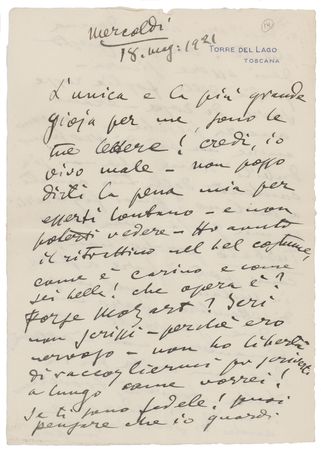 Mercoldì
18. mag: 1921
14
TORRE DEL LAGO
TOSCANA
L'unica e la più grande
gioja per me, sono le
tue lettere! credi, io
vivo male - non posso
dirti la pena mia per
esserti lontano - e non
poterti vedere - Ho avuto
il ritrattino nel bel costume,
come è carino e come
sei bella! che opera è?
Forse Mozart? Ieri
non scrissi - perchè ero
nervoso - non ho libertà
di raccogliermi per scriverti
a lungo come vorrei!
Se ti sono fedele! puoi
pensare che io guardi